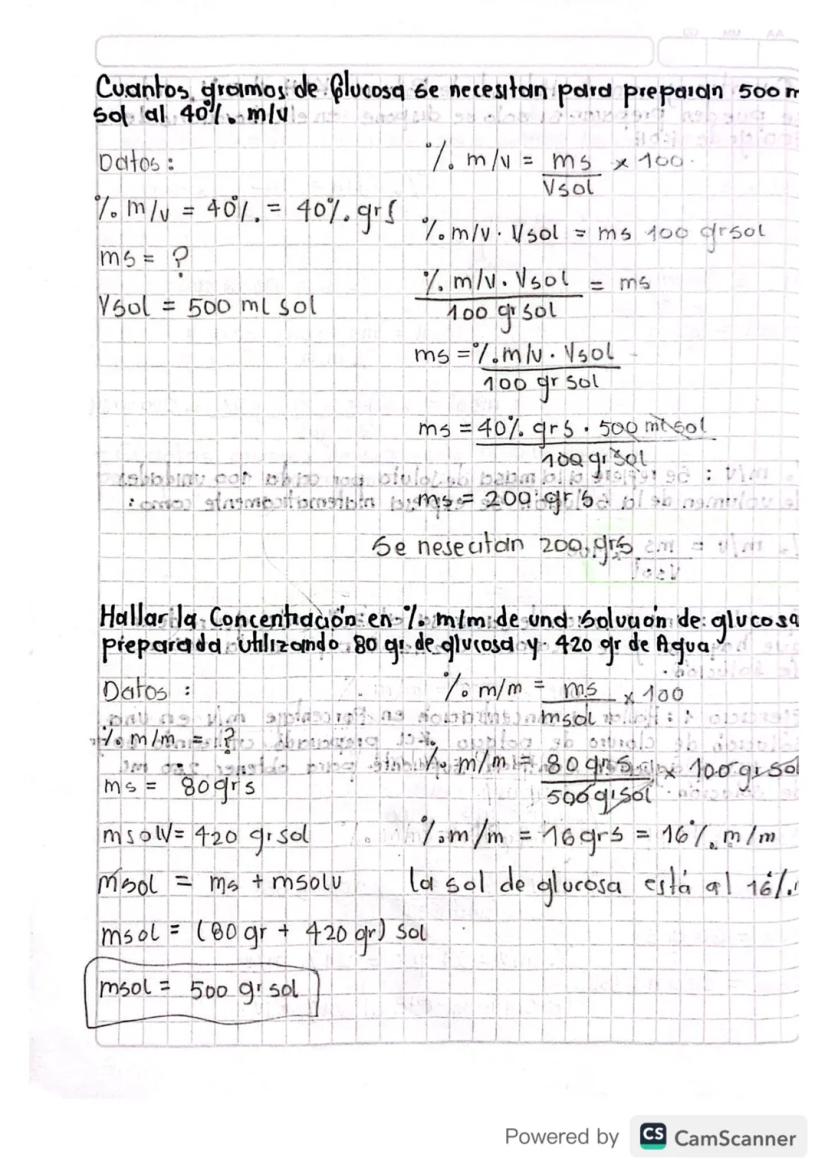 Cuantos gramos de glucosa se necesitan para preparan 500 m
sol al 40%. m/v
Datos:
%. m/v = 40%. = 40%. grs
ms = ?
Vsol = 500 ml sol
%. m/v = ms / Vsol x 100
%.m/v · Vsol = ms 100 gr sol
%. m/v. Vsol / 100 gr sol = ms
ms = %.m/v · Vsol / 100 gr sol
ms = 40%. grs · 500 ml sol / 100 gr sol
ms = 200 grs
Se nesecitan 200 grs
Hallar la Concentración en %. m/m de una Solución de glucosa
preparada utilizando 80 gr de glucosa y 420 gr de Agua
Datos :
%. m/m = ?
ms = 80grs
msolv = 420 gr sol
Msol = ms + msolv
msol = (80 gr + 420 gr) sol
msol = 500 gr sol
%. m/m = ms / msol x 100
%. m/m = 80 grs / 500 gr sol x 100 gr sol
%.m/m = 16grs = 16%. m/m
la sol de glucosa está al 16%.
Powered by CS CamScanner